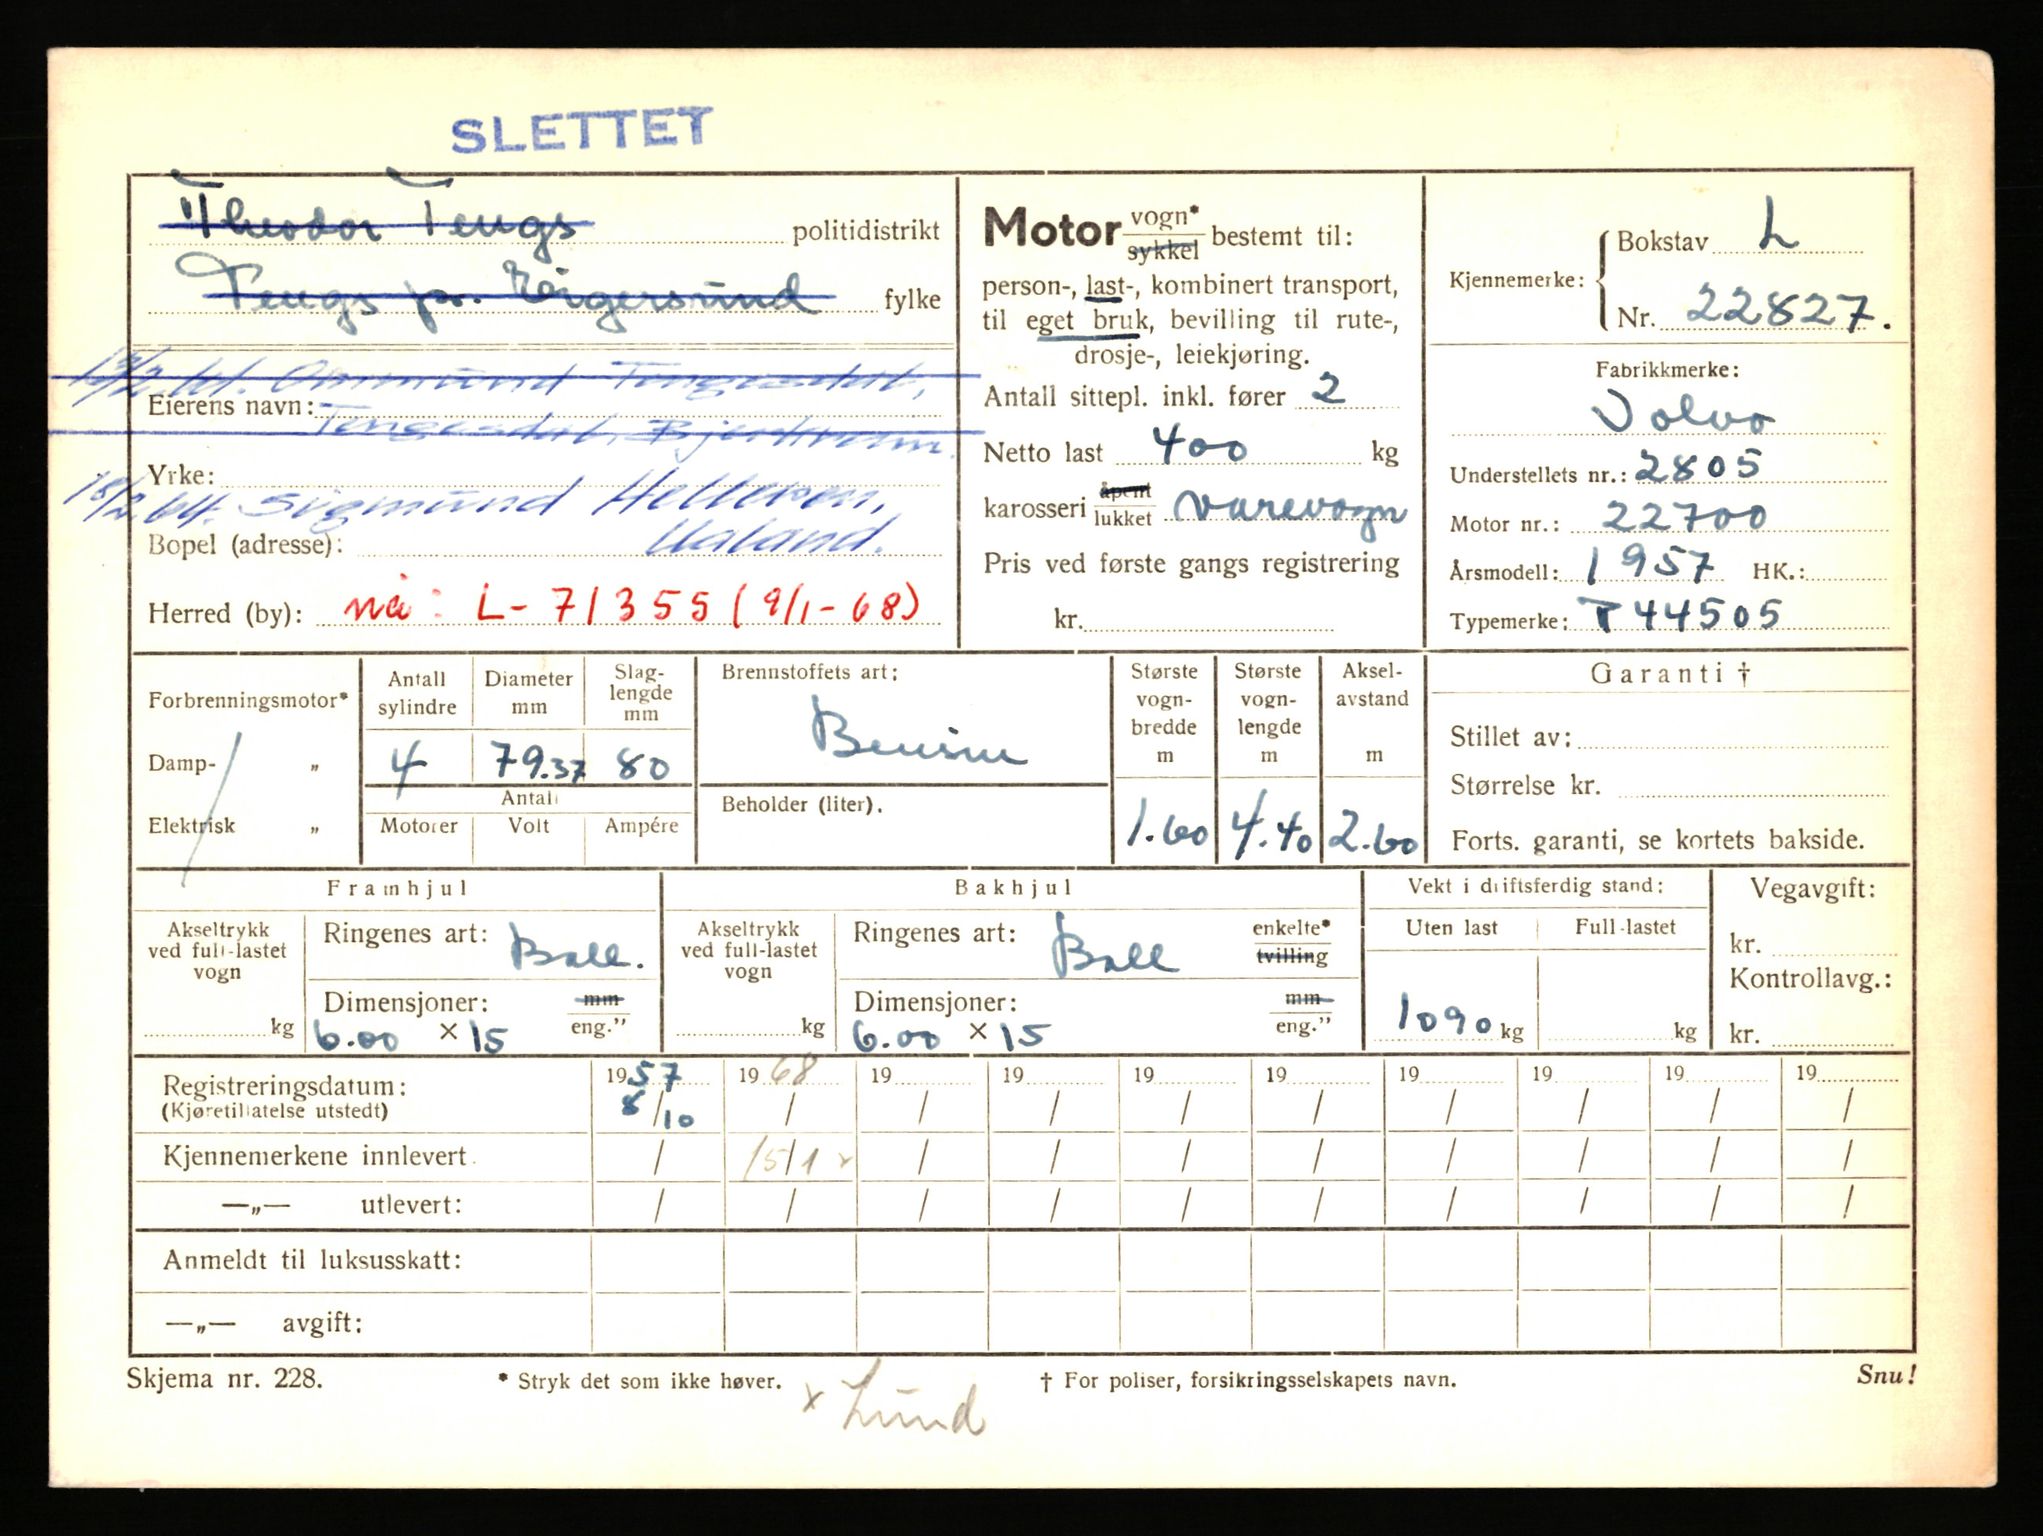 SLETTET
Theodor Tengs politidistrikt
Tengs pr. Eigersund fylke
13/2 61. Åsmund Tengesdal,
Eierens navn:
Tengesdal, Bjerkreim.
Yrke:
18/2 64. Sigmund Helleren,
Bopel (adresse): Ualand.
Herred (by): nå: L-71355 (9/1-68)
Motor vogn* / sykkel bestemt til:
person-, last-, kombinert transport,
til eget bruk, bevilling til rute-,
drosje-, leiekjøring.
Antall sittepl. inkl. fører 2
Netto last 400 kg
karosseri åpent / lukket varevogn
Pris ved første gangs registrering
kr.
Kjennemerke: Bokstav L
Nr. 22827.
Fabrikkmerke:
Volvo
Understellets nr.: 2805
Motor nr.: 22700
Årsmodell: 1957 HK.:
Typemerke: P44505
Forbrenningsmotor*
Damp- „
Elektrisk „
Antall sylindre 4
Diameter mm 79.37
Slag-lengde mm 80
Antall
Motorer Volt Ampére
Brennstoffets art:
Bensin
Beholder (liter).
Største vogn-bredde m 1.60
Største vogn-lengde m 4.40
Aksel-avstand m 2.60
Garanti †
Stillet av:
Størrelse kr.
Forts. garanti, se kortets bakside.
Framhjul
Akseltrykk ved full-lastet vogn
kg
Ringenes art: Ball.
Dimensjoner: mm / eng."
6.00 × 15
Bakhjul
Akseltrykk ved full-lastet vogn
kg
Ringenes art: Ball enkelte* / tvilling
Dimensjoner: mm / eng."
6.00 × 15
Vekt i driftsferdig stand:
Uten last Full-lastet
1090 kg kg
Vegavgift:
kr.
Kontrollavg.:
kr.
Registreringsdatum: 1957 1968 19 19 19 19 19 19 19 19
(Kjøretillatelse utstedt) 8/10 / / / / / / / / /
Kjennemerkene innlevert / 15/1 x / / / / / / / /
—„— utlevert: / / / / / / / / / /
Anmeldt til luksusskatt:
—„— avgift:
Skjema nr. 228. * Stryk det som ikke høver. † For poliser, forsikringsselskapets navn. Snu!
x Lund